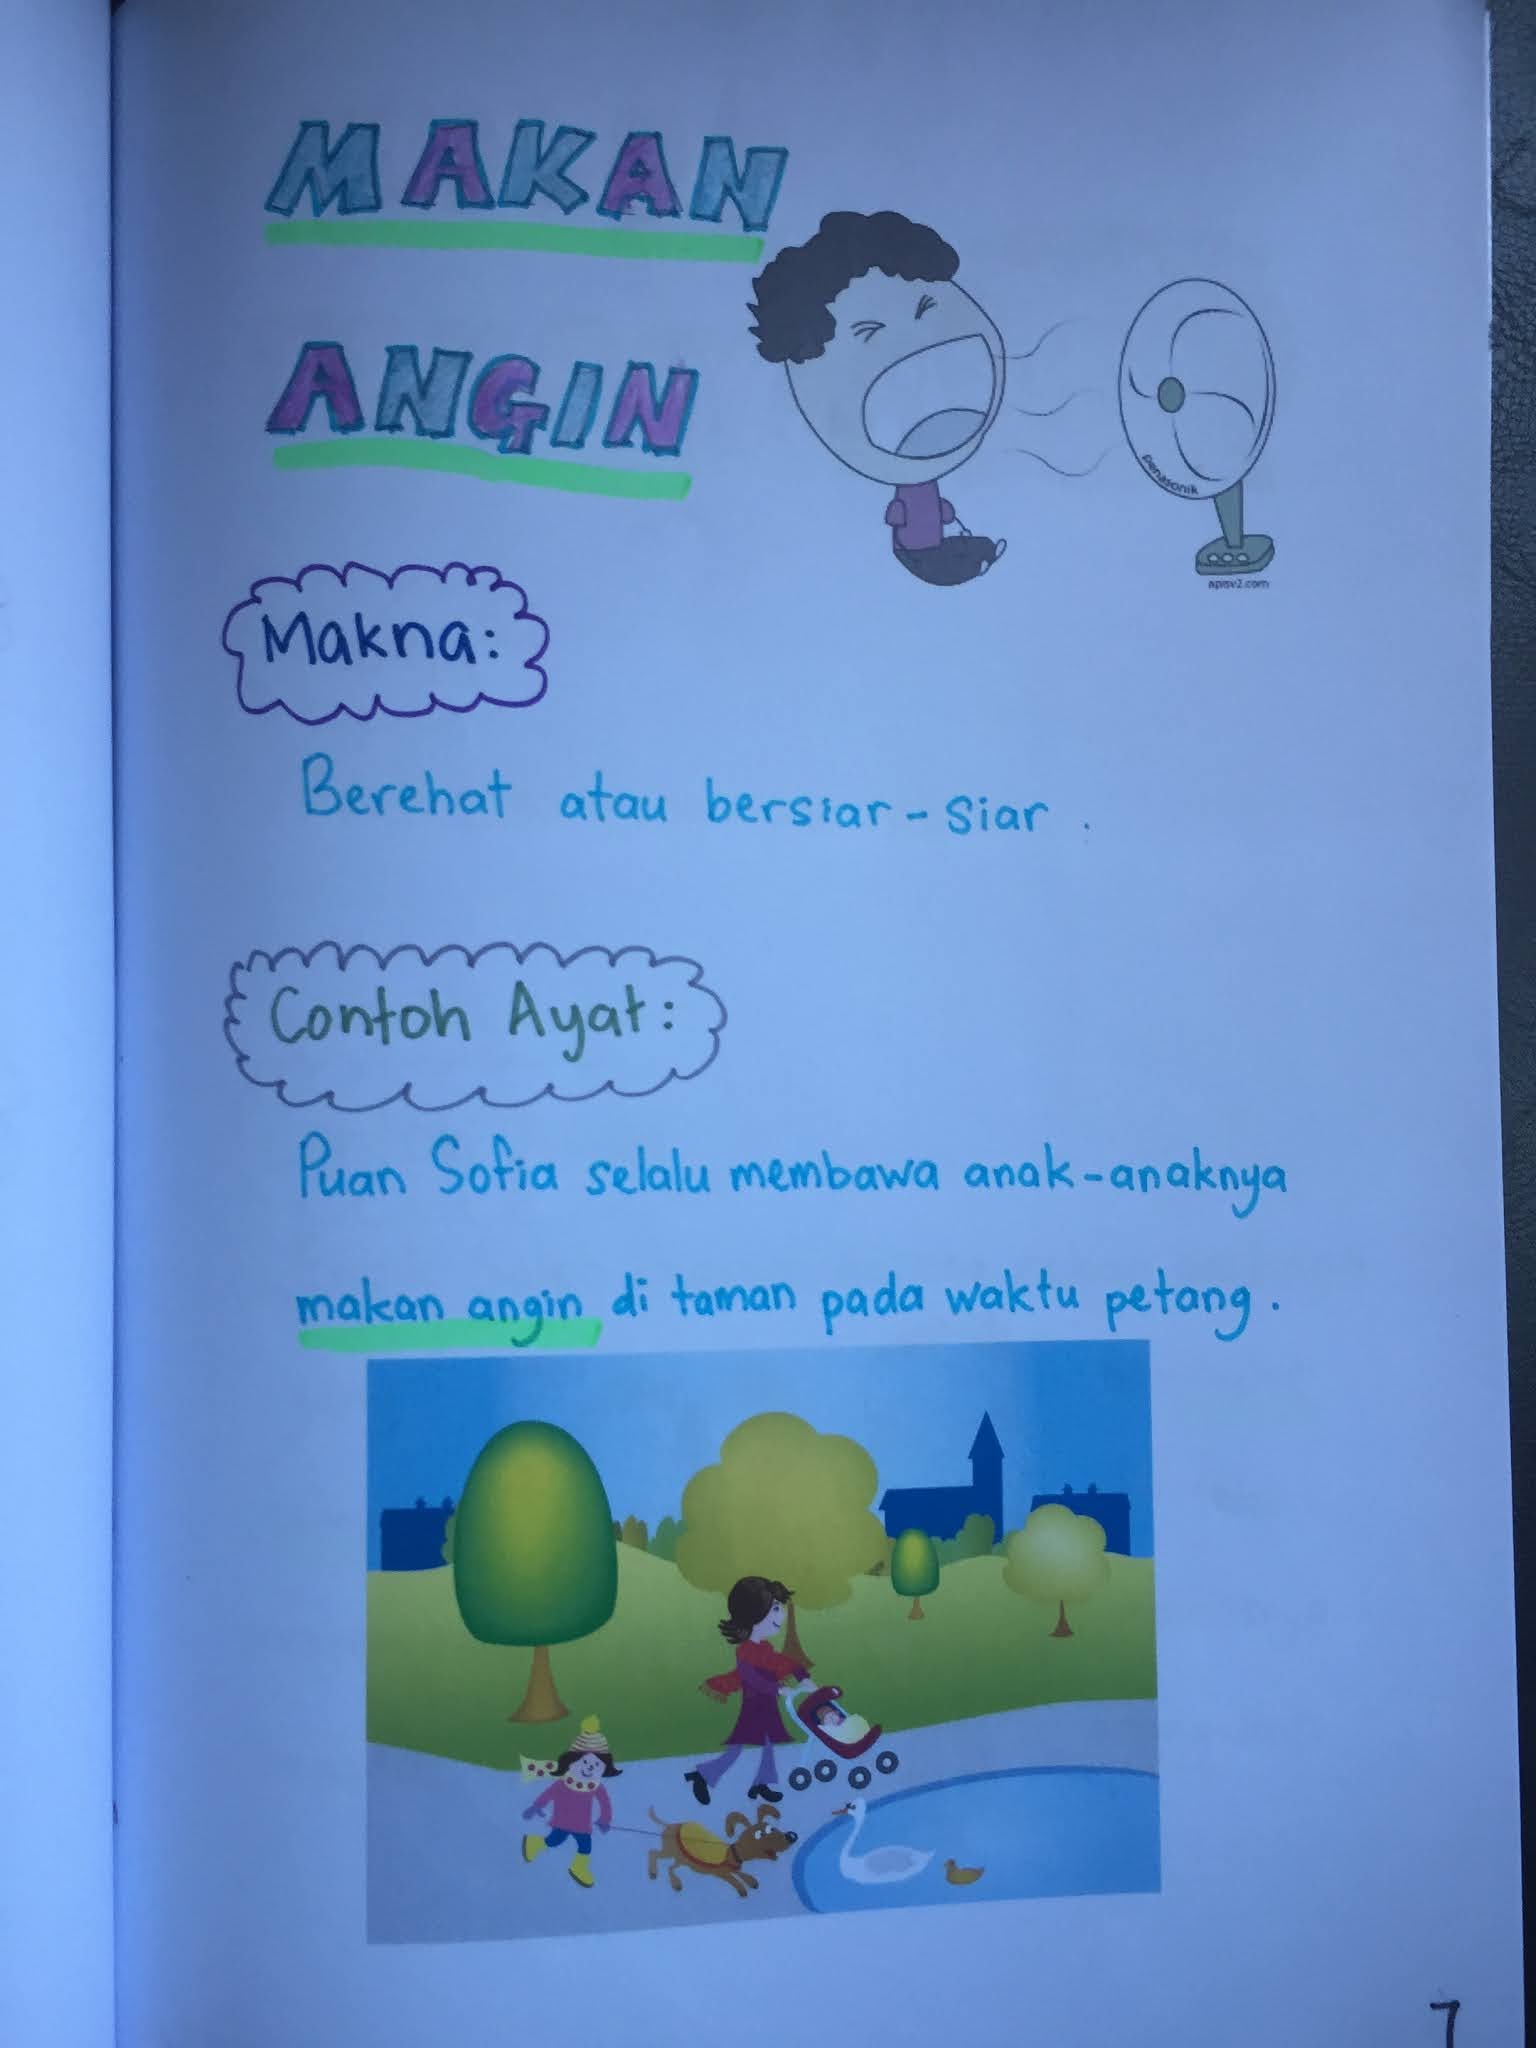 MAKAN
ANGIN
penasonik
apisv2.com
Makna:
Berehat atau bersiar-siar.
Contoh Ayat:
Puan Sofia selalu membawa anak-anaknya
makan angin di taman pada waktu petang.
7